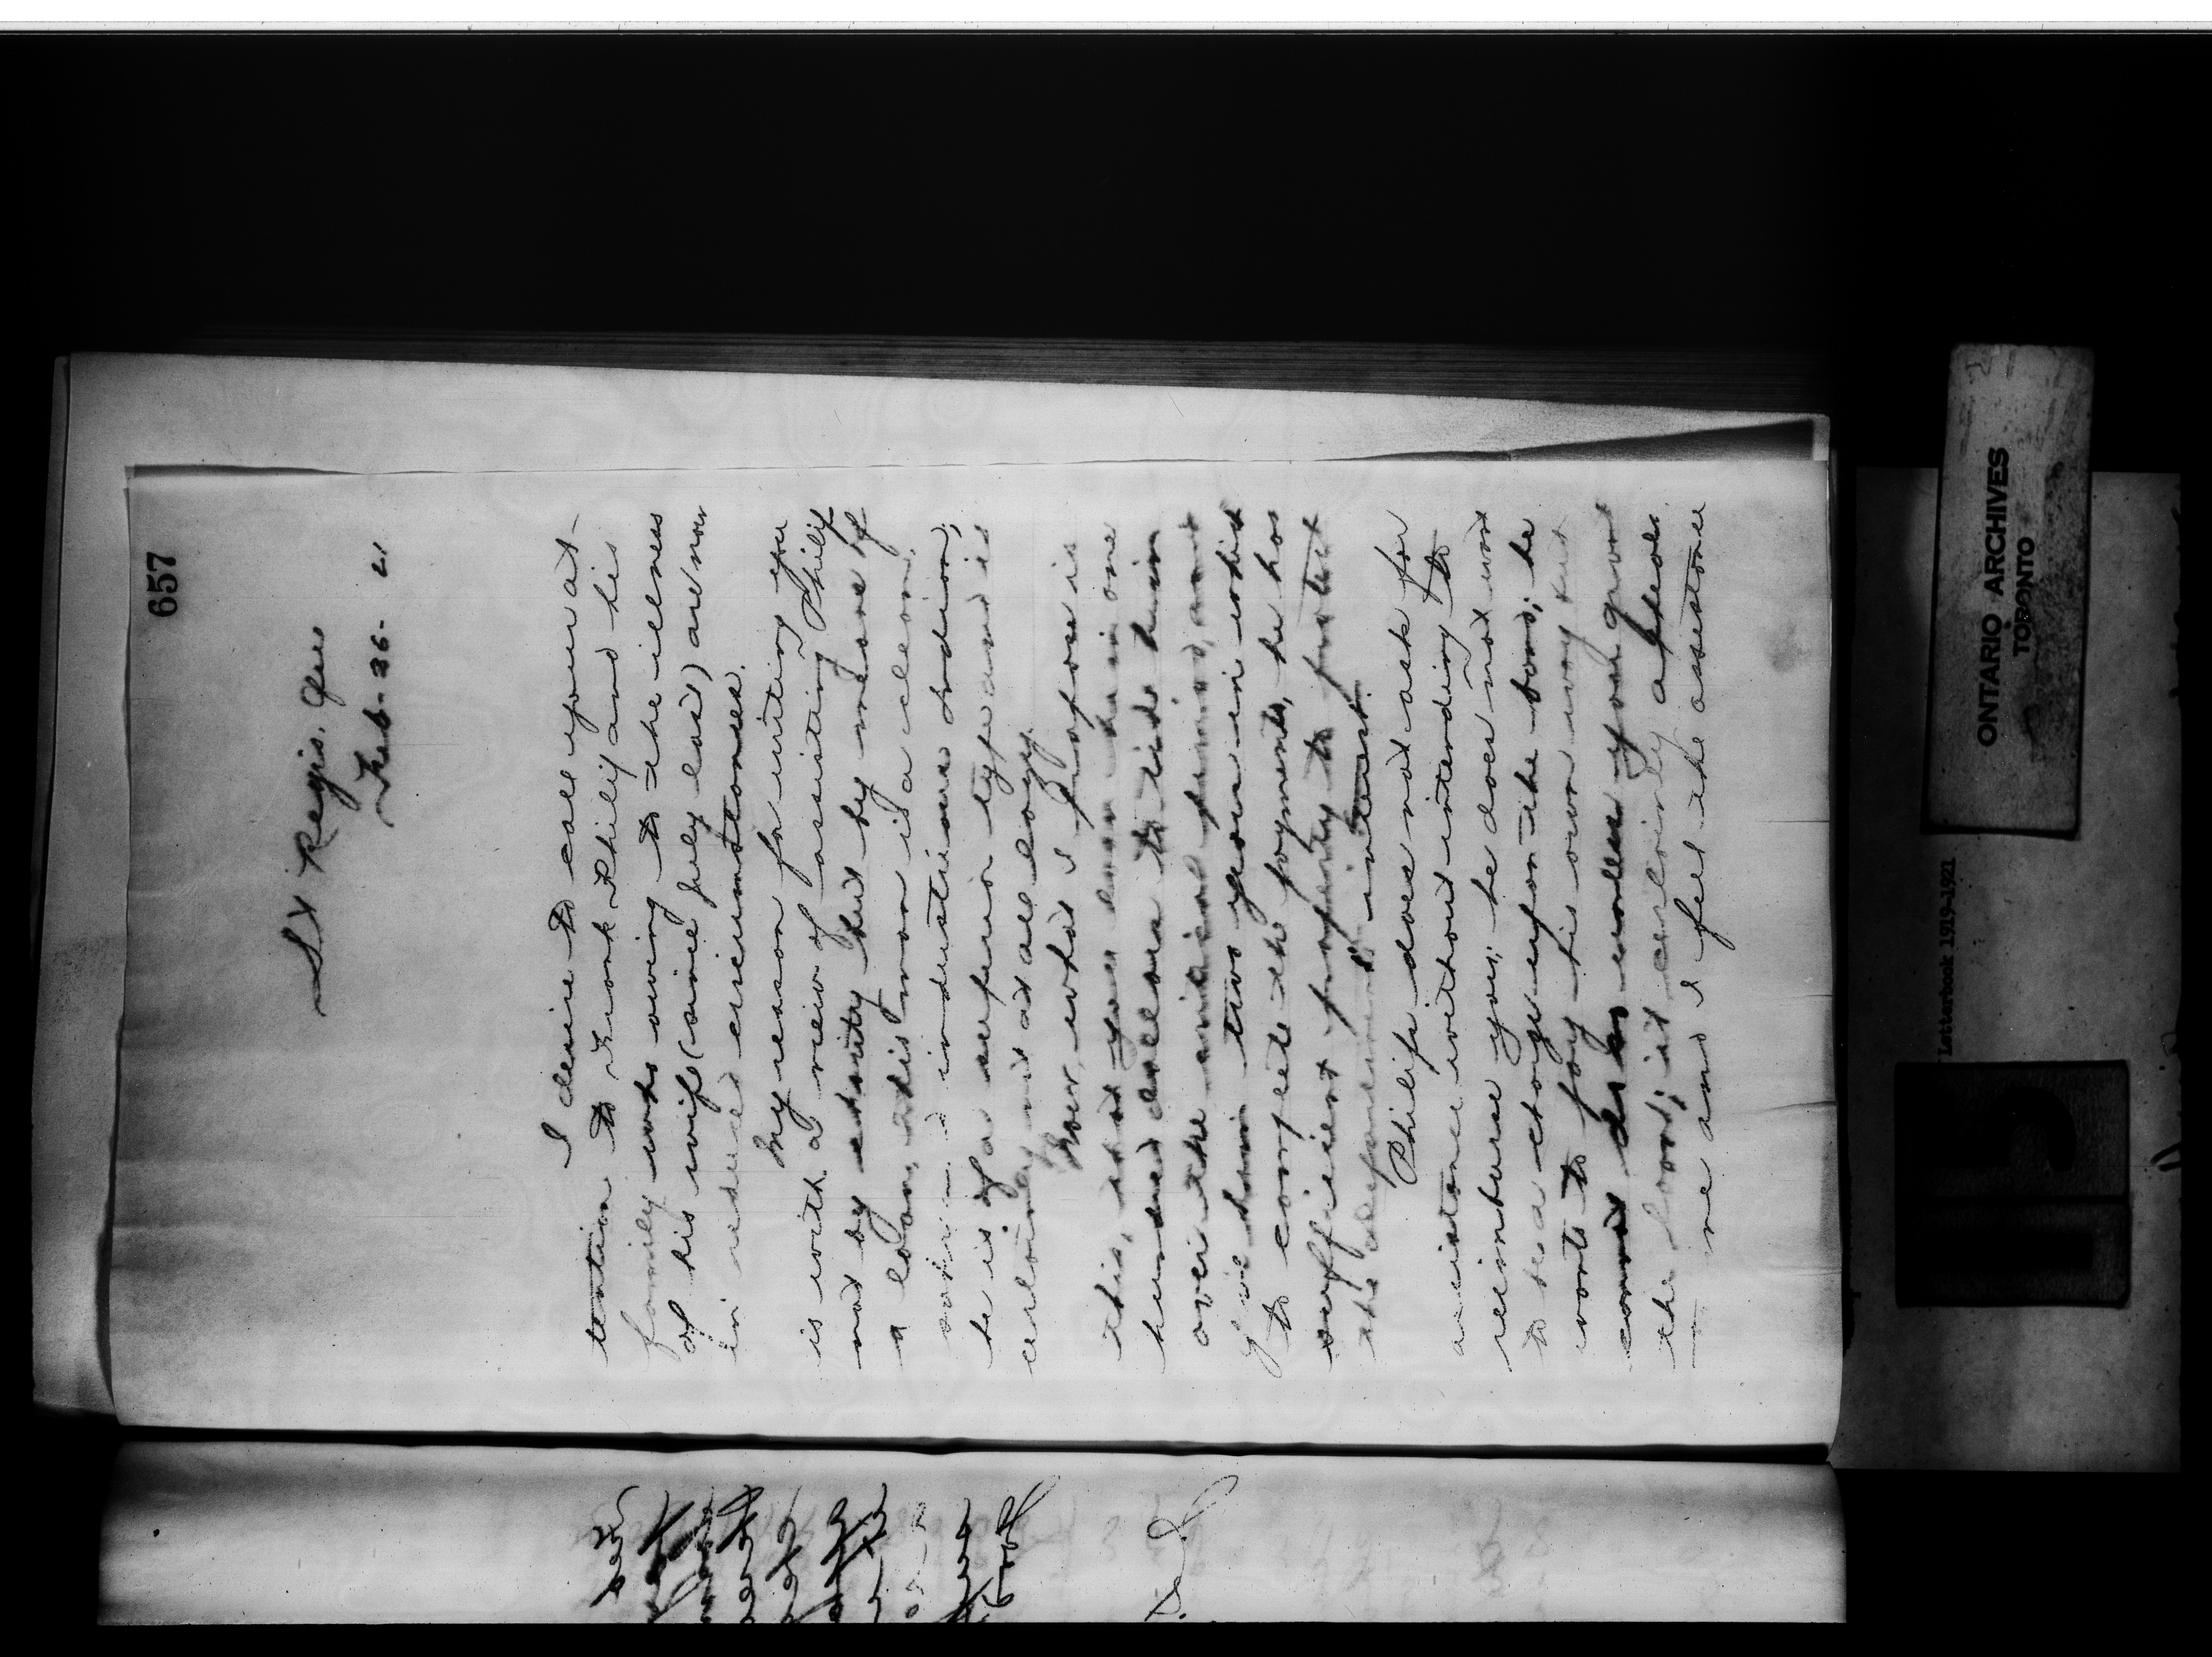 657
St Regis. Que
Feb-26-21
I desire to call your at-
tention to Frank Philip and his
family who owing to the illness
of his wife (since July last) are now
in reduced circumstances.
My reason for writing you
is with a view of assisting Philip
not by charity but by means of
a loan, this man is a clean,
industrious Indian;
he is of a superior type and is
certainly not at all lazy.
Now, what I propose is
this, that you loan him one
hundred dollars to tide him
over the critical period, and
give him two years in which
to complete the payments, he has
sufficient property to protect
the department's interest.
Philip does not ask for
assistance without intending to
reimburse you; he does not want
to be a charge upon the band; he
wants to pay his own way but
cannot do so unless you grant
the loan; it certainly appeals
me and I feel the assistance
ONTARIO ARCHIVES
TORONTO
Letterbook 1919-1921